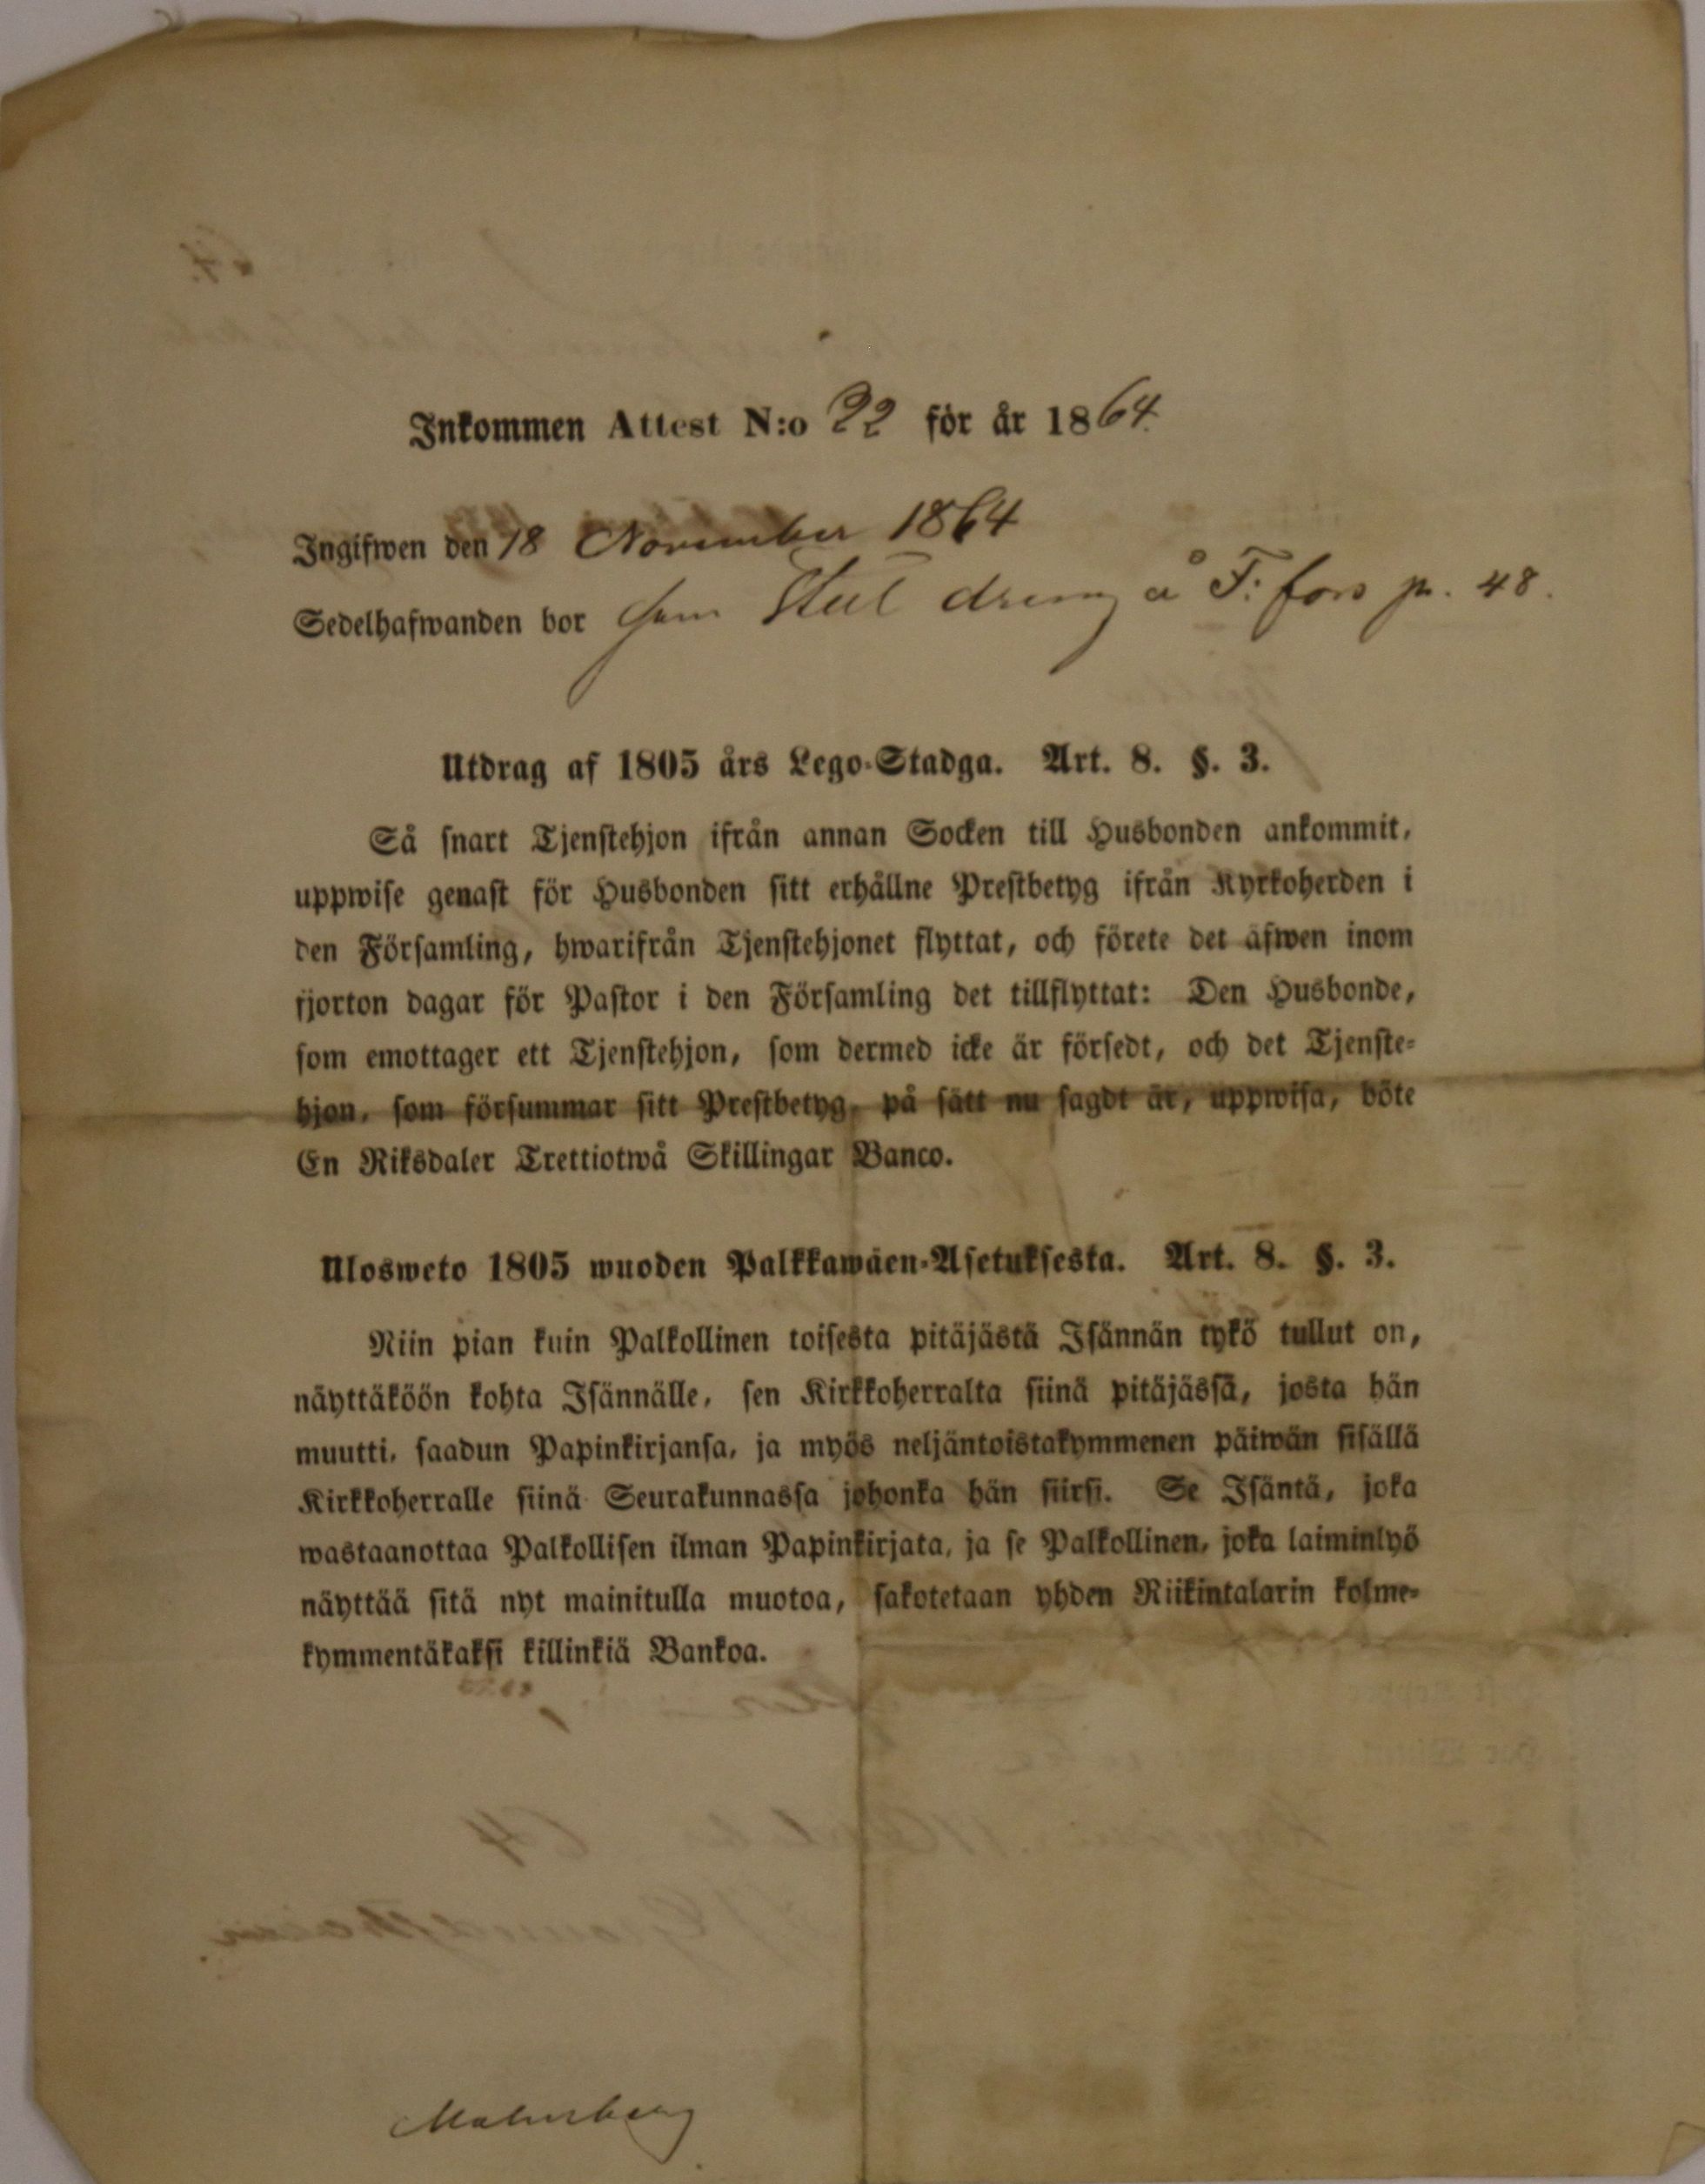 Inkommen Attest N:o 22 för år 1864.
Ingifwen den 18 November 1864
Sedelhafwanden bor som Stal dreng å F: fors p. 48.
Utdrag af 1805 års Lego-Stadga. Art. 8. §. 3.
Så snart Tjenstehjon ifrån annan Socken till Husbonden ankommit,
uppwise genast för Husbonden sitt erhållne Prestbetyg ifrån Kyrkoherden i
den Församling, hwarifrån Tjenstehjonet flyttat, och förete det äfwen inom
fjorton dagar för Pastor i den Församling det tillflyttat: Den Husbonde,
som emottager ett Tjenstehjon, som dermed icke är försedt, och det Tjenste-
hjon, som försummar sitt Prestbetyg, på sätt nu sagdt är, uppwisa, böte
En Riksdaler Trettiotwå Skillingar Banco.
Ulosweto 1805 wuoden Palkkawäen-Asetuksesta. Art. 8. §. 3.
Niin pian kuin Palkollinen toisesta pitäjästä Isännän tykö tullut on,
näyttäköön kohta Isännälle, sen Kirkkoherralta siinä pitäjässä, josta hän
muutti, saadun Papinkirjansa, ja myös neljäntoistakymmenen päiwän sisällä
Kirkkoherralle siinä Seurakunnassa johonka hän siirsi. Se Isäntä, joka
wastaanottaa Palkollisen ilman Papinkirjata, ja se Palkollinen, joka laiminlyö
näyttää sitä nyt mainitulla muotoa, sakotetaan yhden Riikintalarin kolme-
kymmentäkaksi killinkiä Bankoa.
Malmberg